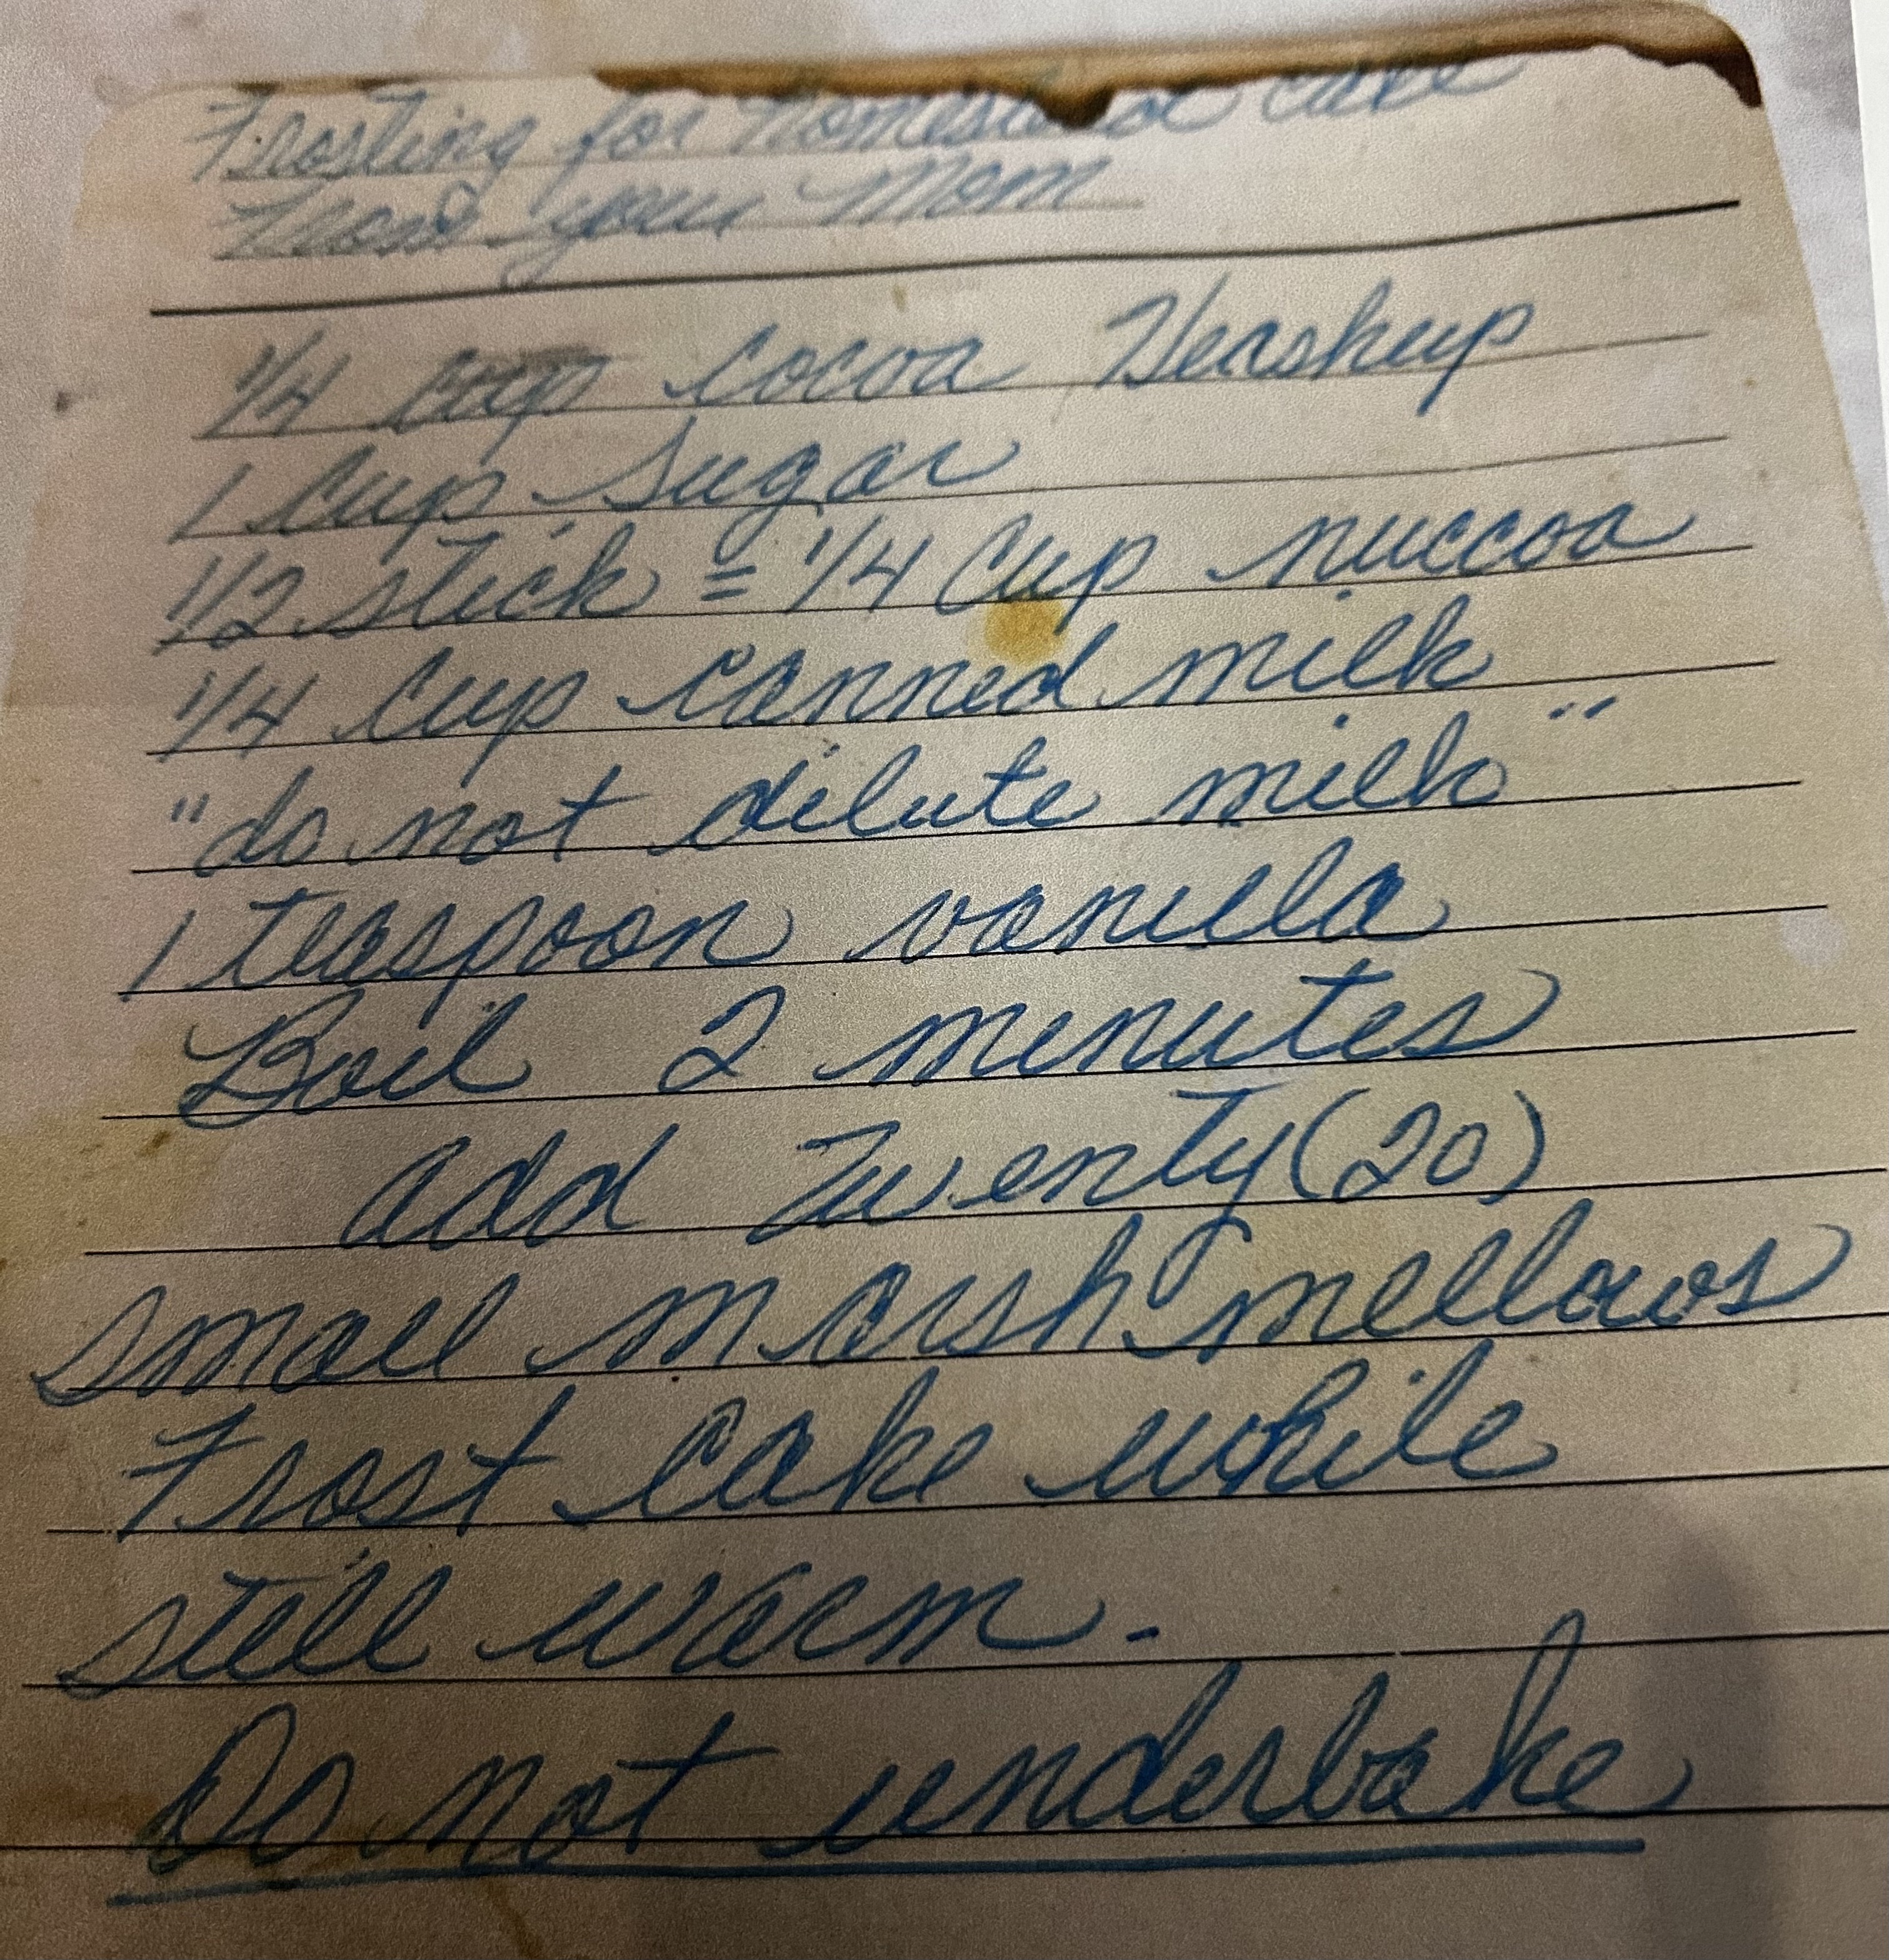 Frosting for Homestead Cake
From your Mom
1/4 cup cocoa Hershey
1 Cup Sugar
1/2 stick = 1/4 Cup nuccoa
1/4 Cup canned milk
"do not dilute milk"
1 teaspoon vanilla
Boil 2 minutes
add Twenty (20)
small marsh mellows
Frost Cake while
still warm.
Do not underbake